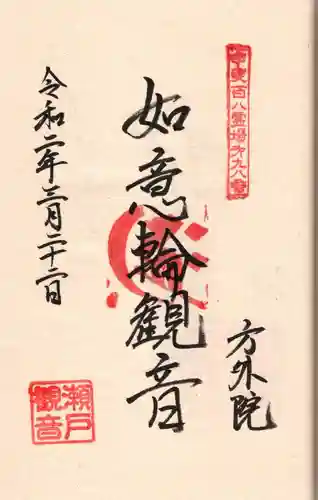 甲斐百八霊場第九八番
方外院
如意輪観音
令和二年三月二十二日
瀬戸
観音